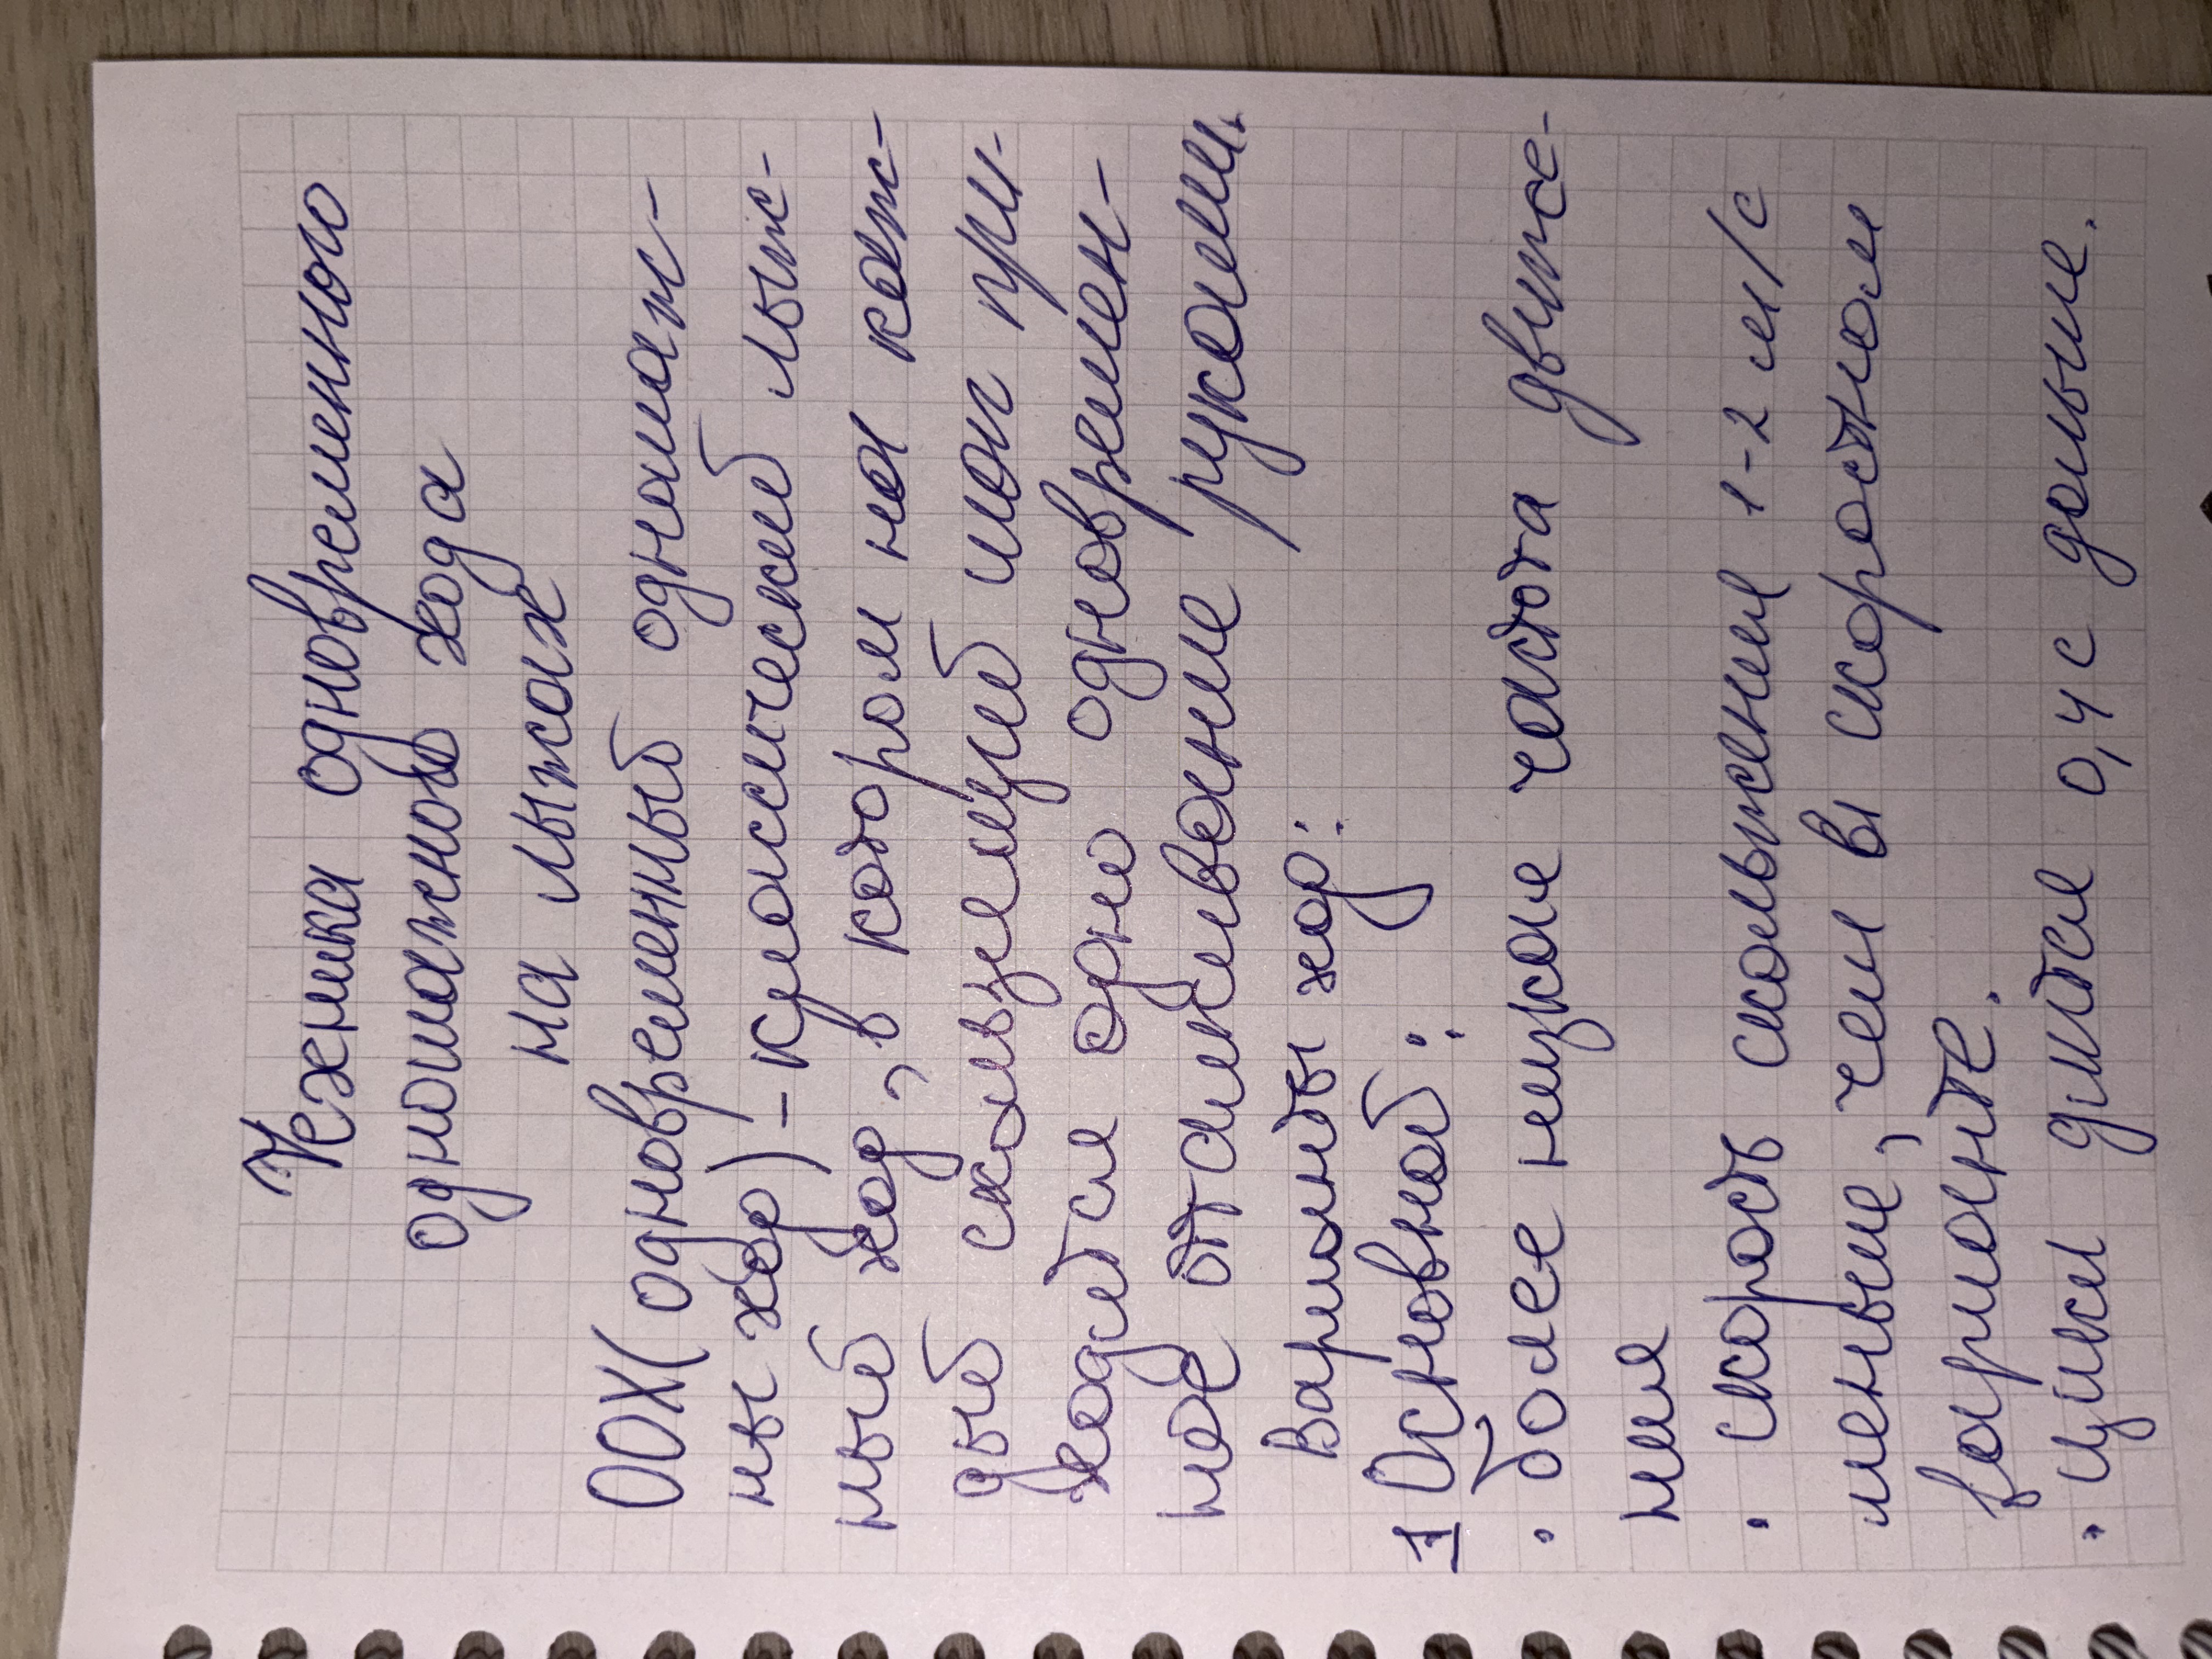 Техника одновременного
одношажного хода
на лыжах
ООХ(одновременный одношаж-
ны ход) - классический лыж-
ный ход, в котором на каж-
дый скользящий шаг при-
ходится одно одновремен-
ное отталкивание руками.
Варианты ход:
1 Основной:
• более низкая частота движе-
ния
• скорость скольжения 1-2 м/с
меньше, чем в скоростном
варианте.
• цикл длится 0,4 с дольше.